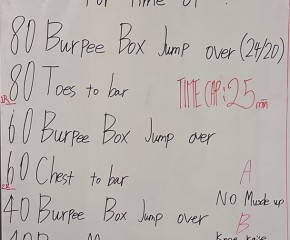 For Time of :
80 Burpee Box Jump over (24/20)
80 Toes to bar
TIME CAP: 25 min
60 Burpee Box Jump over
60 Chest to bar
A
NO Muscle up
40 Burpee Box Jump over
B